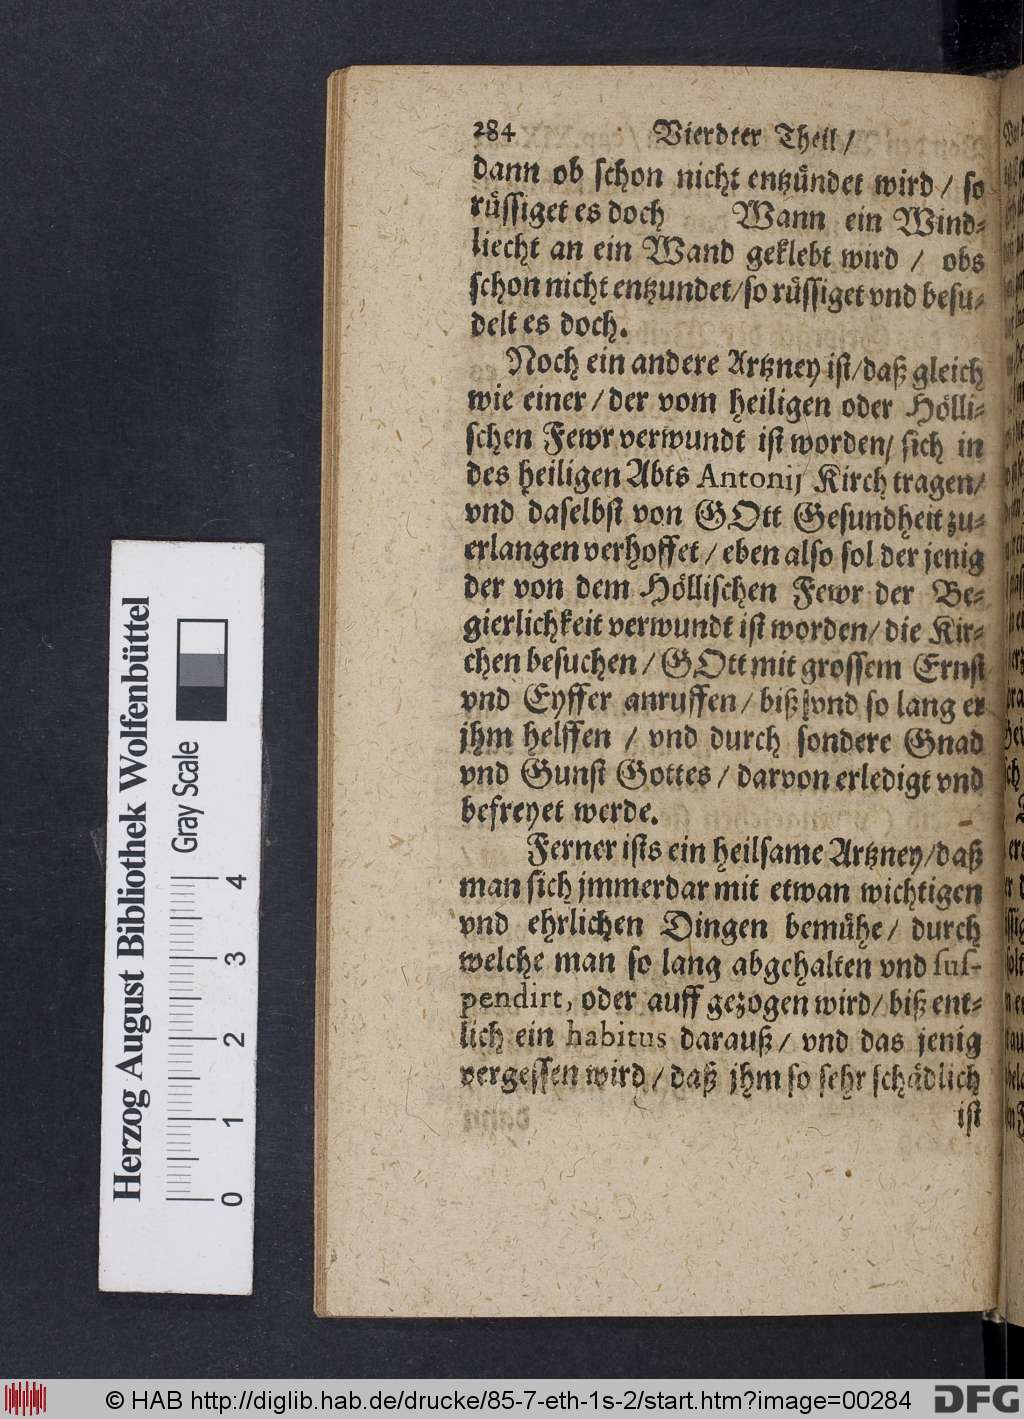 284 Vierdter Theil /
dann ob schon nicht entzündet wird / so
rüssiget es doch Wann ein Wind-
liecht an ein Wand geklebt wird / obs
schon nicht entzundet/so rüssiget vnd besu-
delt es doch.
Noch ein andere Artzney ist/daß gleich
wie einer / der vom heiligen oder Hölli-
schen Fewr verwundt ist worden/ sich in
des heiligen Abts Antonij Kirch tragen/
vnd daselbst von GOtt Gesundheit zu-
erlangen verhoffet / eben also sol der jenig
der von dem Höllischen Fewr der Be-
gierlichkeit verwundt ist worden/ die Kir-
chen besuchen / GOtt mit grossem Ernst
vnd Eyffer anruffen / biß vnd so lang er
jhm helffen / vnd durch sondere Gnad
vnd Gunst Gottes / darvon erledigt vnd
befreyet werde.
Ferner ists ein heilsame Artzney/daß
man sich jmmerdar mit etwan wichtigen
vnd ehrlichen Dingen bemühe / durch
welche man so lang abgehalten vnd sus-
pendirt, oder auff gezogen wird/ biß ent-
lich ein habitus darauß / vnd das jenig
vergessen wird / daß jhm so sehr schädlich
ist
Herzog August Bibliothek Wolfenbüttel
Gray Scale
0 1 2 3 4
© HAB http://diglib.hab.de/drucke/85-7-eth-1s-2/start.htm?image=00284
DFG